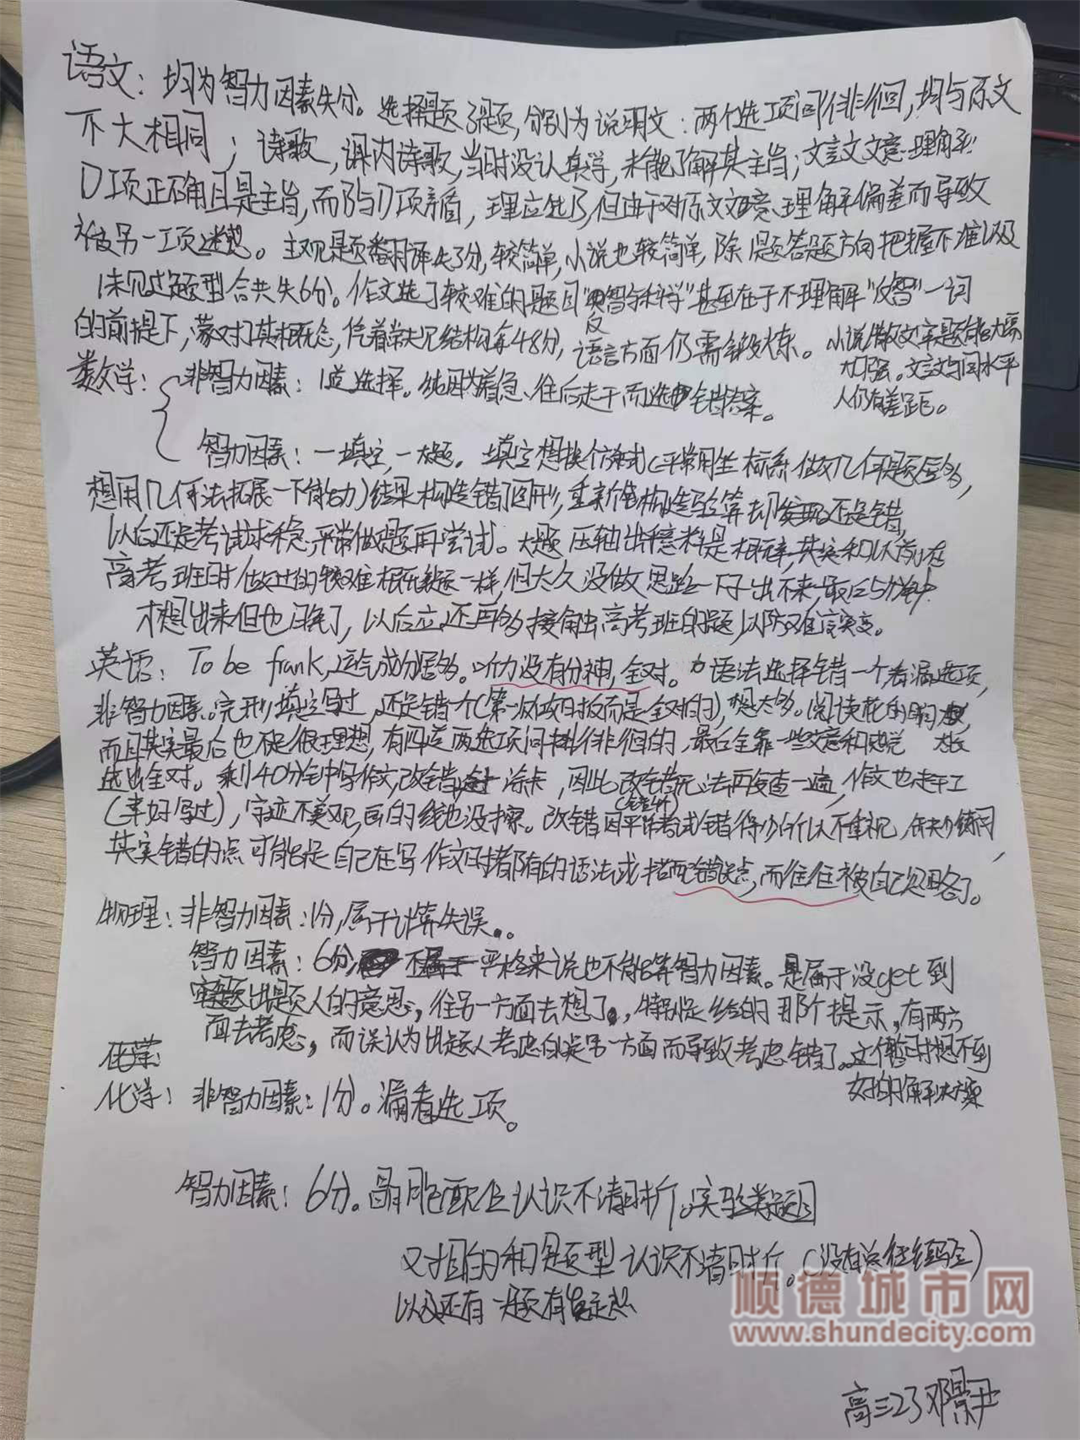 语文：均为智力因素失分。选择题3题，分别为说明文：两个选项间徘徊，均与原文
不大相同；诗歌，课内诗歌，当时没认真学，未能了解其主旨；文言文文意理解
D项正确且是主旨，而B与D项矛盾，理应选B，但由于对原文文意理解偏差而导致
被另一项迷惑。主观题翻译失3分，较简单，小说也较简单，除1题答题方向把握不准以及
1未见过题型合共失6分。作文选了较难的题目"奥智钟科学"甚至在于不理解"奥智"一词
的前提下，蒙对了其概念，凭着常见结构拿48分，语言方面仍需锻炼。小说散文
人仍有差距。
数学：非智力因素：1道选择。纯因为着急、往后走于而选错答案。
智力因素：一填空，一大题。填空想换个方式（平常用坐标系做几何题居多，
想用几何法拓展一下能力）结果构造错了图形，重新构造验算却发现还是错，
以后还是考试求稳，平常做题再尝试。大题压轴出乎意料是概率，其实和以前在
高考班时做过的较难概率题一样，但太久没做思路一下子出不来，最后5分钟
才想出来但也晚了，以后应还再多接触高考班的题以防难试突变。
英语：To be frank，运气成分居多。听力没有分神，全对。语法选择错一个，看漏选项，
非智力因素。完形填空写过，还是错一个（第一次项目报而是全对的），想太多。阅读
而且其实最后也不是很理想，有四道两选项间徘徊的，最后全靠一些文意和
选出全对。剩40分钟写作文改错涂卡，因此改错无法再复查一遍，作文也赶工
（幸好写过），字迹不美观，画的线也没擦。改错因平常考试错得少所以不重视，
其实错的点可能是自己在写作文时都有的语法或搭配错点，而往往被自己忽略了。
物理：非智力因素：1分，属于计算失误。
智力因素：6分，严格来说也不能算智力因素。是属于没get到
出题人的意思，往另一方面去想了。特别是给的那个提示，有两方
面去考虑，而误认为出题人考虑的是另一方面而导致考虑错了。这暂时想不到
好的解决方案
化学：非智力因素：1分。漏看选项。
智力因素：6分。晶胞配位认识不清晰。实验类题目
对目的和题型认识不清晰。（没有总结经验）
以及还有一题有
顺德城市网
www.shundecity.com
高三23邓景尹